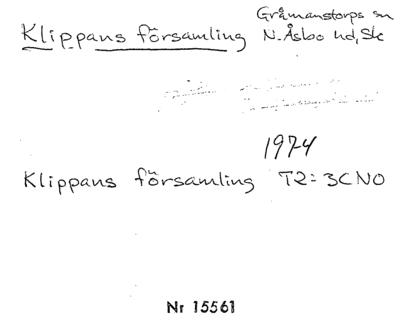 Klippans församling Gråmanstorps sn
N. Åsbo hd, Sk
1974
Klippans församling T2: 3CNO
Nr 15561